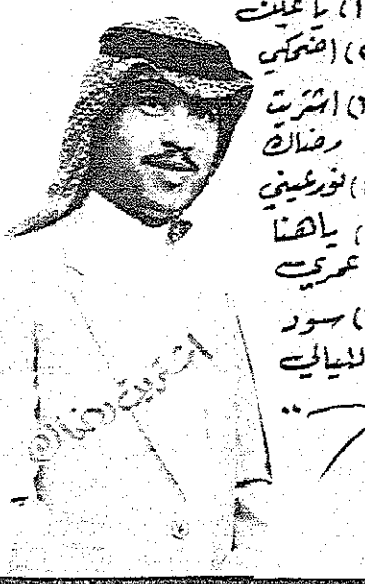 ١) يا عيلت
٢) اضحكي
٣) اشتريت
رضاك
) نور عيني
) ياهنا
عمري
) سود
الليالي
اشتريت رضاك